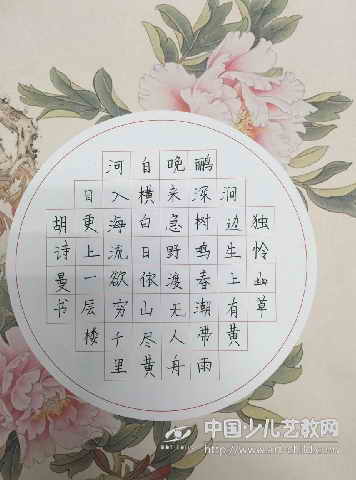 独怜幽草
涧边生上有黄
鹂深树鸣春潮带雨
晚来急野渡无人舟
自横白日依山尽黄
河入海流欲穷千里
目更上一层楼
胡诗曼书
中国少儿艺教网
www.artchild.com